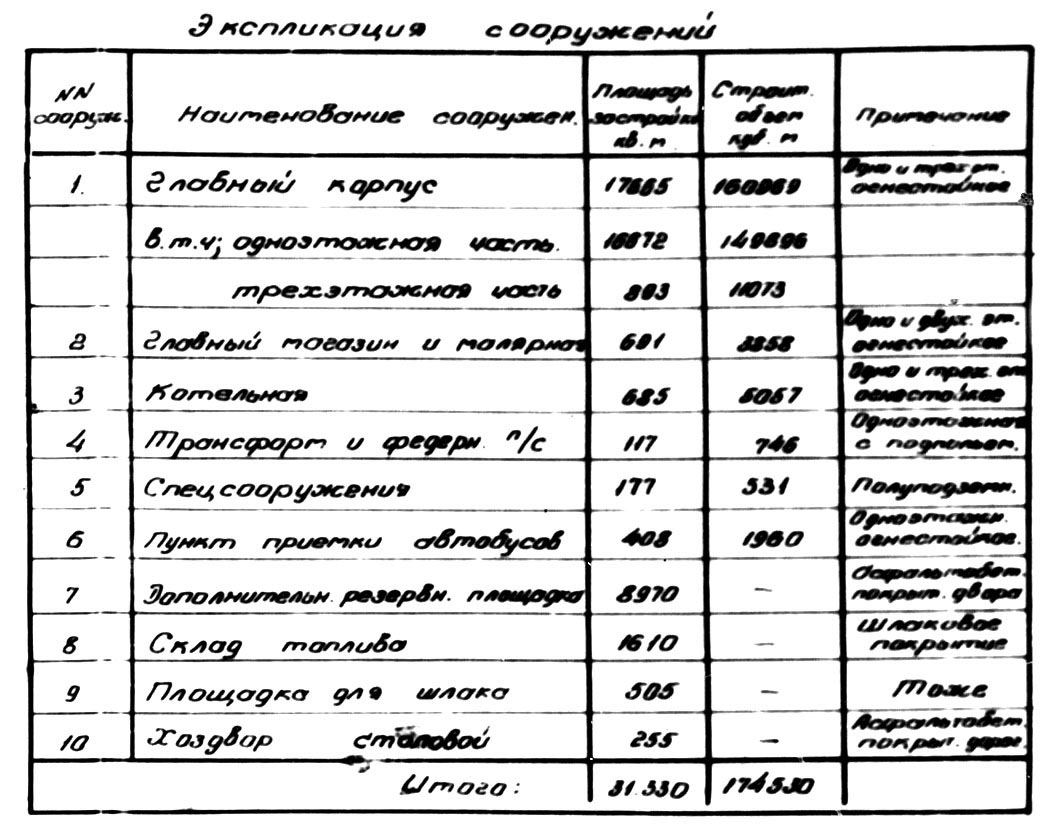 Экспликация сооружений
NN сооруж.
Наименование сооружен.
Площадь застройки кв. м
Строит. объем куб. м
Примечание
1. Главный корпус 17665 160969 Одно и трех эт. огнестойкое
в.т.ч; одноэтажная часть. 16872 149896
трехэтажная часть 803 11073
2 Главный магазин и малярная 691 3858 Одно и двух. эт. огнестойкое
3 Котельная 685 5057 Одно и трех. эт огнестойкое
4 Трансфорт и федерн. п/с 117 746 Одноэтажная с подпольем.
5 Спецсооружения 177 531 Полуподземн.
6 Пункт приемки автобусов 408 1960 Одноэтажн. огнестойкое.
7 Дополнительн. резервн. площадка 8970 — Асфальтобет. покрыт. двора
8 Склад топлива 1610 — Шлаковое покрытие
9 Площадка для шлака 505 — Тоже
10 Хоздвор столовой 255 — Асфальтобет. покрыт. дорог.
Итого: 31.330 174530